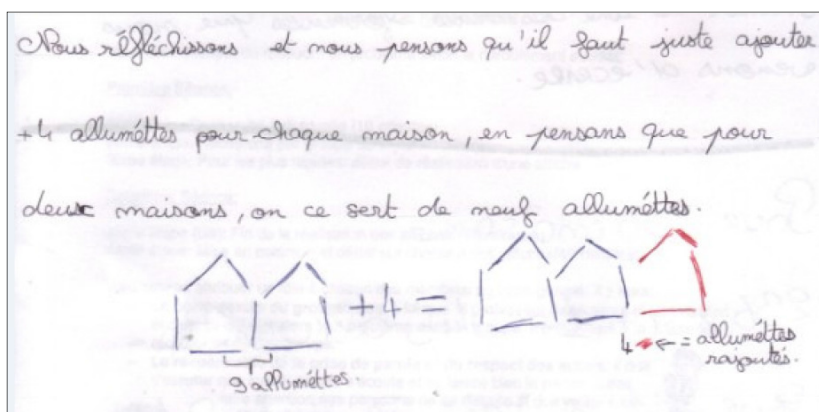 Nous réfléchissons et nous pensons qu'il faut juste ajouter
+4 alluméttes pour chaque maison, en pensans que pour
deux maisons, on ce sert de neuf alluméttes.
+4=
9 alluméttes.
4 ← = alluméttes
rajoutés.